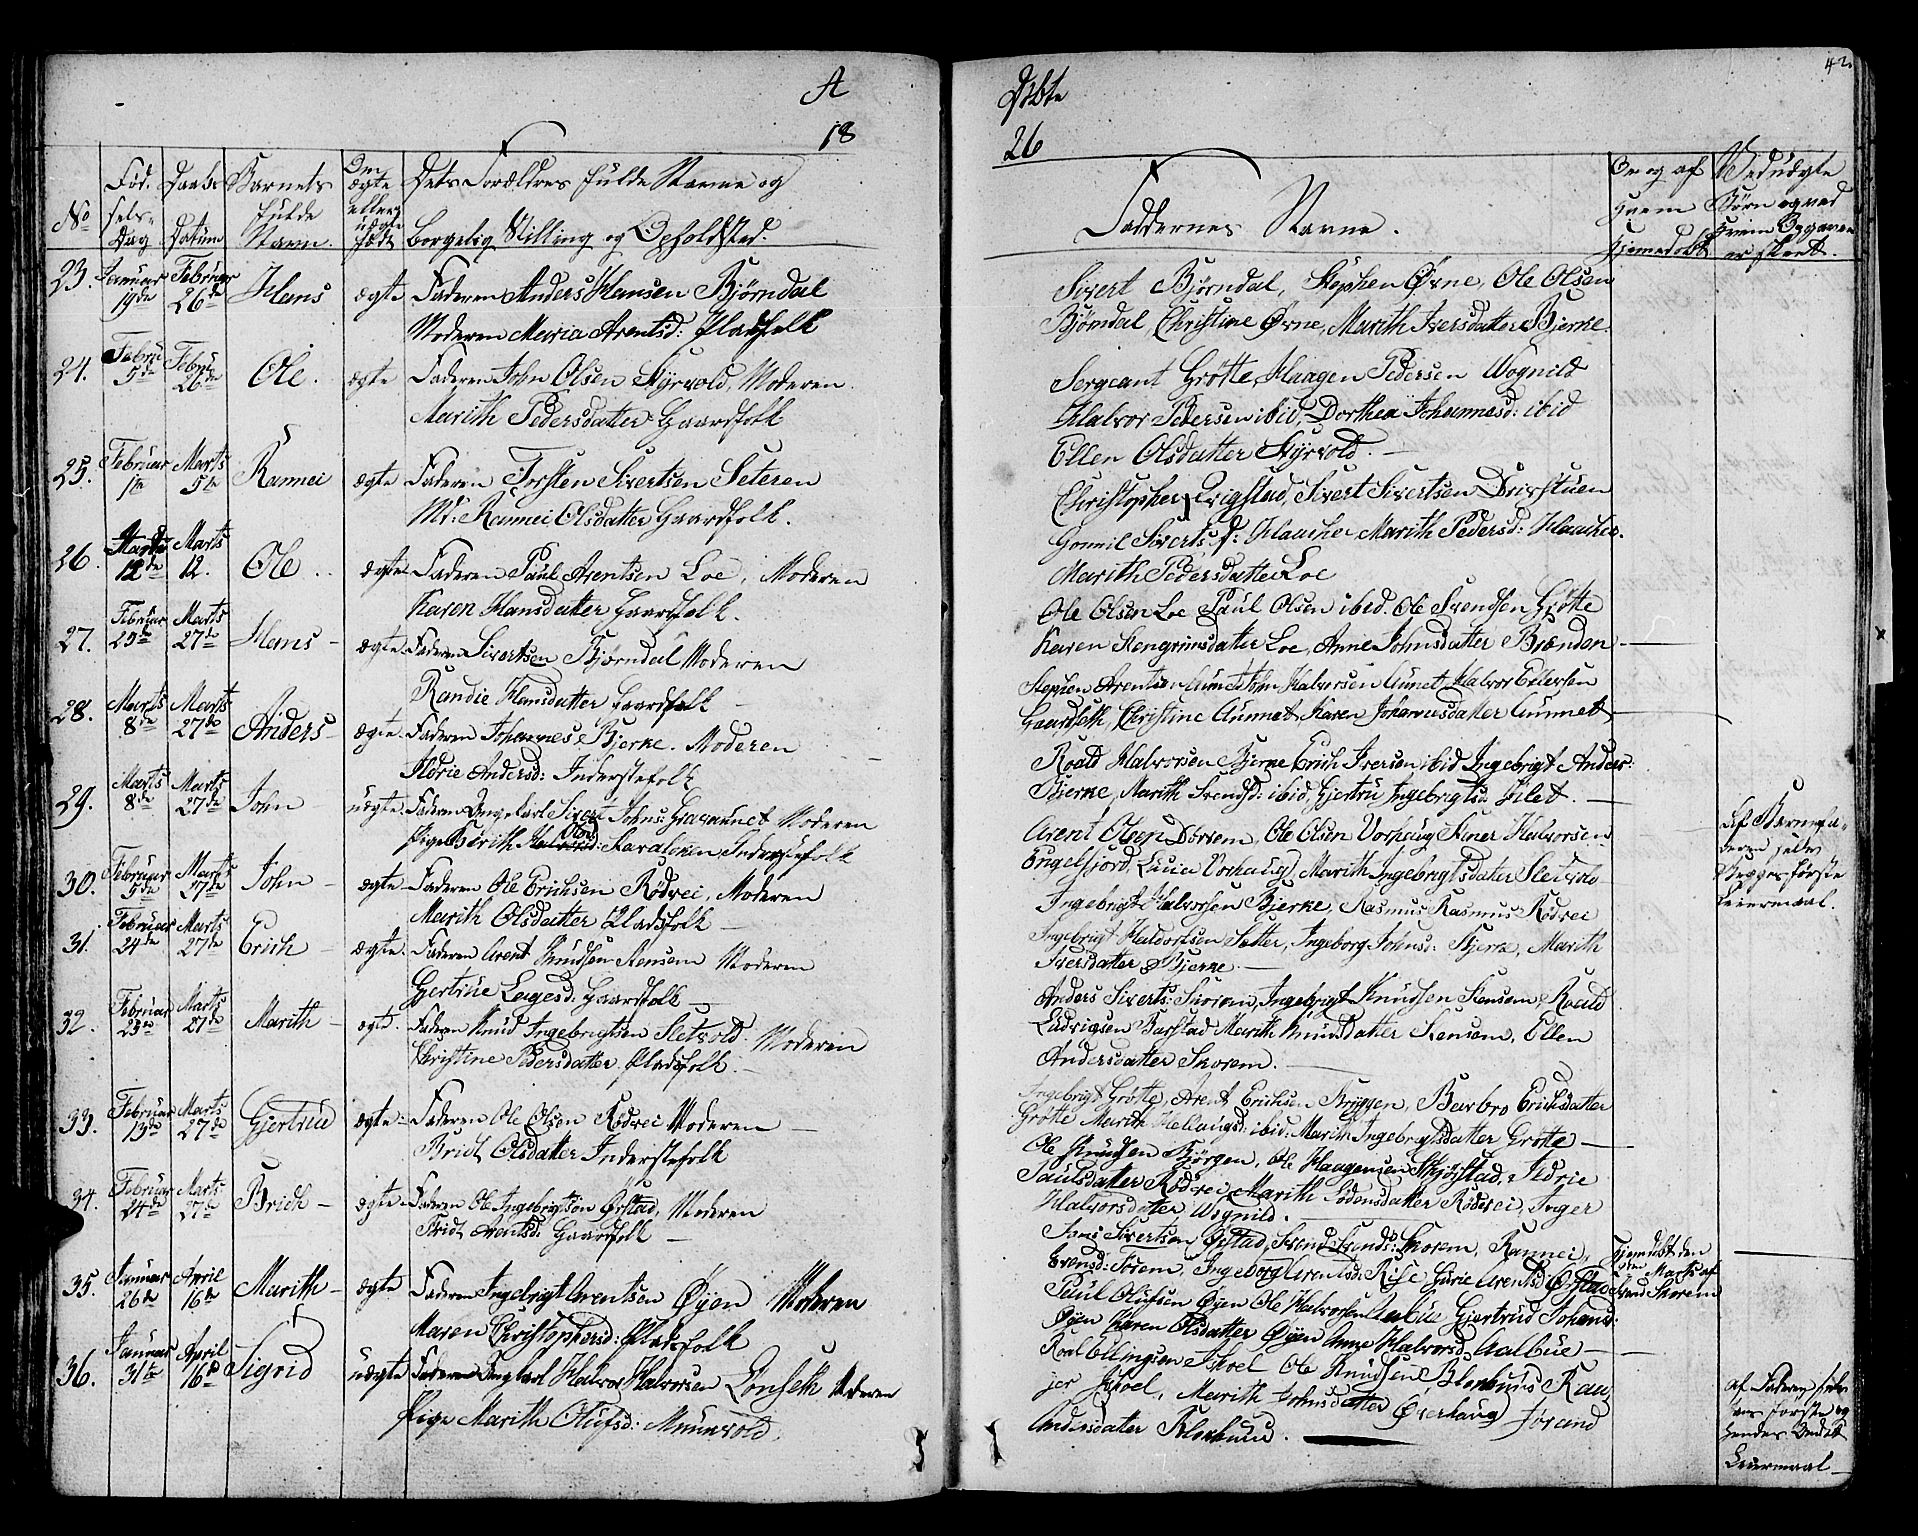 A
18
No
Fød-
sels-
Dag
Daabs
Datum
Barnets
fulde
Navn.
Om
ægte
eller
uægte
født
Dets Forældres fulde Navne og
borgelig Stilling og Opholdsted.
23. Januar 19de Februar 26de Hans ægte Faderen Anders Hansen Bjørndal
Moderen Maria Arentsd: Pladsfolk
24. Febru 5de Febru 26de Ole. ægte Faderen John Olsen Styrvold, Moderen
Marith Pedersdatter Gaardfolk
25. Februar 1te Marts 5te Rannei ægte Faderen Torsten Sivertsen Seteren
Md: Rannei Olsdatter Gaardfolk.
26. 12de Marts 12. Ole. ægte Faderen Paul Arentsen Loe, Moderen
Karen Hansdatter Gaardfolk.
27. Februar 25de Marts 27de Hans ægte Faderen Sivertsen Bjørndal Moderen
Randie Hansdatter Gaardfolk
28. Marts 8de Marts 27de Anders ægte. Faderen Johannes Bjerke. Moderen
Ildrie Andersd: Inderstefolk
29. Marts 8de Marts 27de John uægte Faderen Ungekarl Sivert Johns: Moderen
Pige Berith Olsd: Inderstefolk
30. Februar 5de Marts 27de John ægte Faderen Ole Erichsen Rødvei, Moderen
Marith Olsdatter Pladsfolk
31. Februar 24de Marts 27de Erich ægte Faderen Arent Knudsen Stensem Moderen
Gjertrue Lagesd: Gaardfolk
32. Februar 23de Marts 27de Marith ægte. Faderen Knud Ingebrigtsen Sletvold. Moderen
Christine Pedersdatter. Pladsfolk.
33. Februar 13de Marts 27de Gjertrud ægte Faderen Ole Olsen Rødvei Moderen
Bridt Olsdatter Inderstefolk
34. Februar 24de Marts 27de Bridt ægte Faderen Ole Ingebrigtsøn Ørstad, Moderen
Bridt Arentsd: Gaardfolk
35. Januar 26de April 16de Marith ægte Faderen Ingebrigt Arentsen Øyen Moderen
Maren Christophersd: Pladsfolk
36. Januar 31te April 16de Sigrid uægte Faderen Ungkarl Halvor Halvorsen Lonseth Moderen
Pige Marith Olufsd: Munkvold.
Døbte
26
42.
Faddernes Navne.
Om og af
Hvem
hjemedøbt
Ved uægte
Børn og ved
hvem Opgaven
er skeet.
Sivert Bjørndal, Stephen Øvne, Ole Olsen
Bjørndal, Christine Øvne, Marith Iversdatter Bjerke.
Sergeant Grøtte, Haagen Pedersen Wognild
Halvor Pedersen ibid, Dorthea Johannesd: ibid
Ellen Olsdatter Styrvold.
Christopher Sivert Sivertsen Drivstuen
Gonnil Marith Pedersd:
Marith Pedersdatter Loe
Ole Olsen Loe Paul Olsen ibid. Ole Svendsen Grøtte
Karen Stengrimsdatter Loe, Anne Johnsdatter Brænden
Stephen Arentsen Aunet John Halvorsen Aunet Halvor Ellevsen
Christine Aunnet, Karen Johannesdatter Aunnet
Roald Halvorsen Bjerke Erich Iversen ibid Ingebrigt Anders:
Bjerke, Marith Svendsd: ibid, Gjertru Ingebrigtsd:
Arent Olsen Dørrem, Ole Olsen Vorhaug Halvorsen
Engelsjord, Lucia Vorhaug, Marith Ingebrigtsdatter Sletvold
Ingebrigt Halvorsen Bjerke, Rasmus Rasmus Rødvei
Ingebrigt Haldorsen Setter, Ingeborg Johnsd: Bjerke, Marith
Iversdatter Bjerke.
Anders Siverts: Skorem, Ingebrigt Knudsen Stensem, Roald
Ludvigsen Barstad Marith Knudsdatter Stensem, Ellen
Andersdatter Skorem.
Ingebrigt Grøtte, Arent Erichsen Bryggen, Barbro Erichsdatter
Grøtte Marith ibid: Marith Ingebrigtsdatter Grøtte
Ole Knudsen Bjørgen, Ole Haagensen Ildrie
Paulsdatter Rødvei, Marith Rødvei, Inger
Halvorsdatter Wognild.
Jens Sivertsen Ørstad, Svend Svends: Skorem, Rannei
Svensd: Skorem, Ingeborg Arentsd: Rise Gurie Arentsd: Ørstad
Paul Olufsen Øyen Ole Halvorsen Aalbue Gjertrud Johansd:
Øyen Karen Olsdatter Øyen Anne Halvorsd: Aalbue
Roal Ellingsen Ishoel Ole Knudsen Blokhuus Ran
jer Ishoel, Marith Johnsdatter Øverhaug Jorand
Andersdatter Blokhuus.
Hjemdøbt den
Marts af
Svend Skorem
af Barnefa-
deren selv
Begges første
Leiermaal.
af Faderen selv
hans første og
hendes Andet
Leiermaal